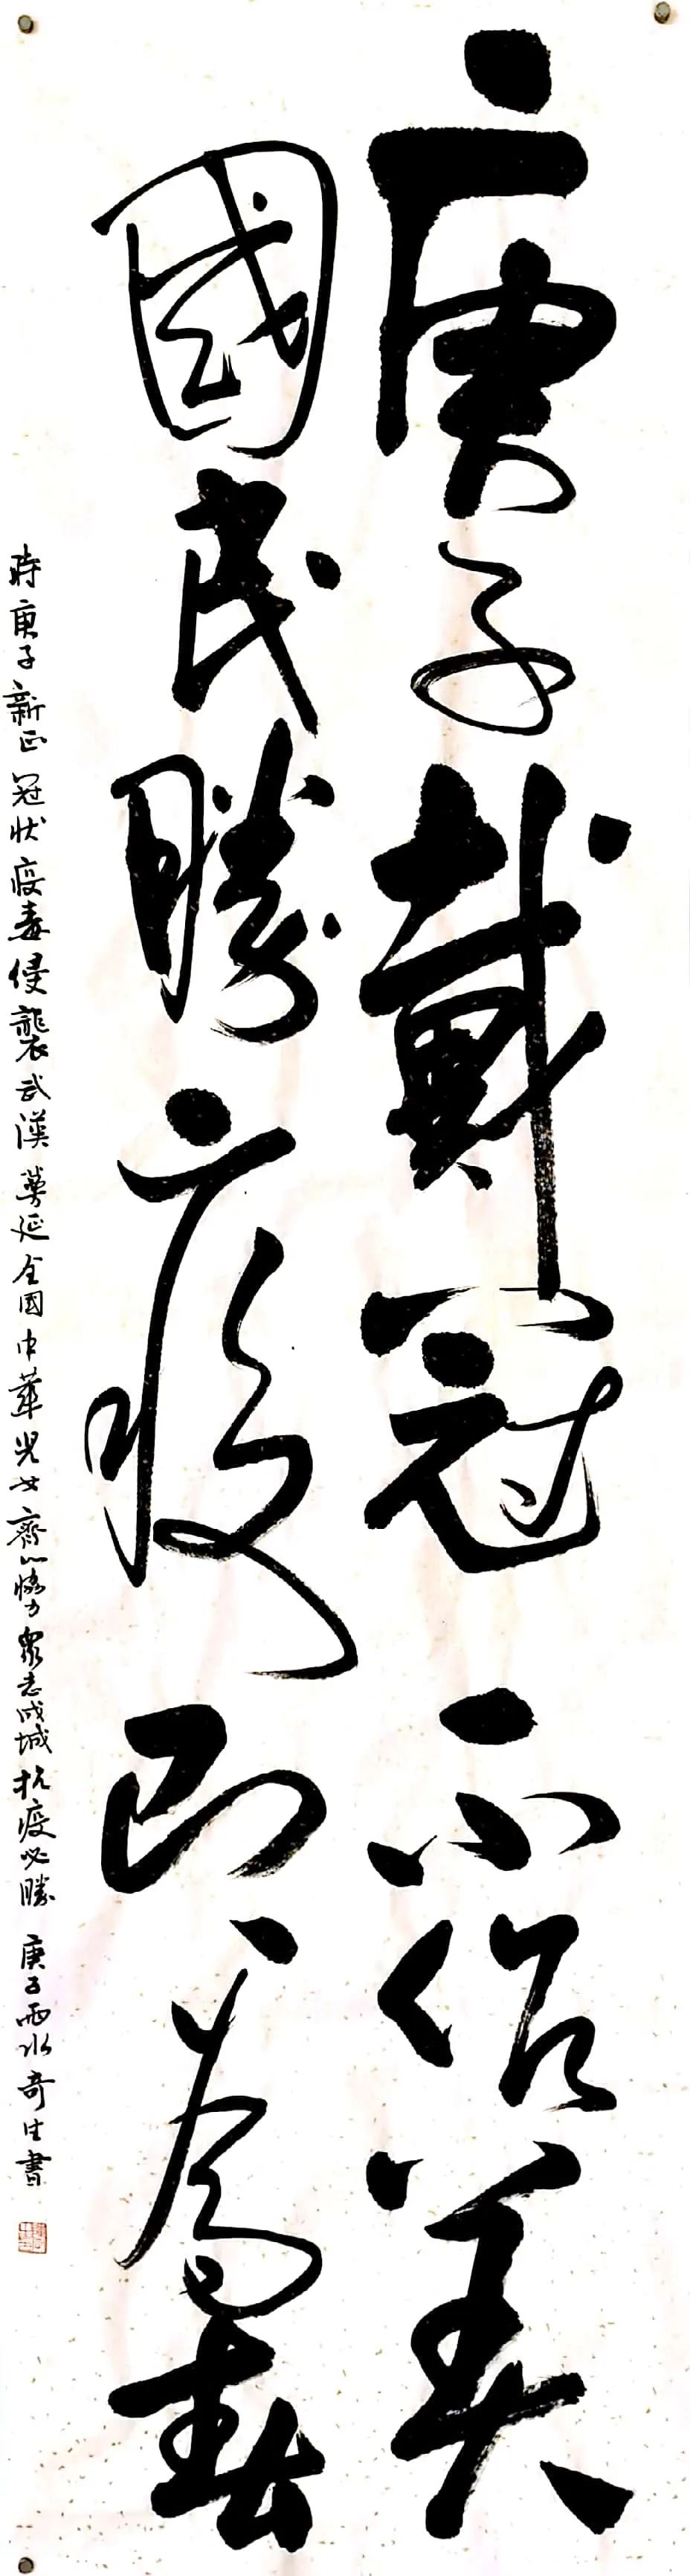 庚子戴冠不俗美
國民勝疫即為春
時庚子新正冠狀疫毒侵襲武漢蔓延全國中華兒女齊心協力眾志成城抗疫必勝 庚子雨水奇生書